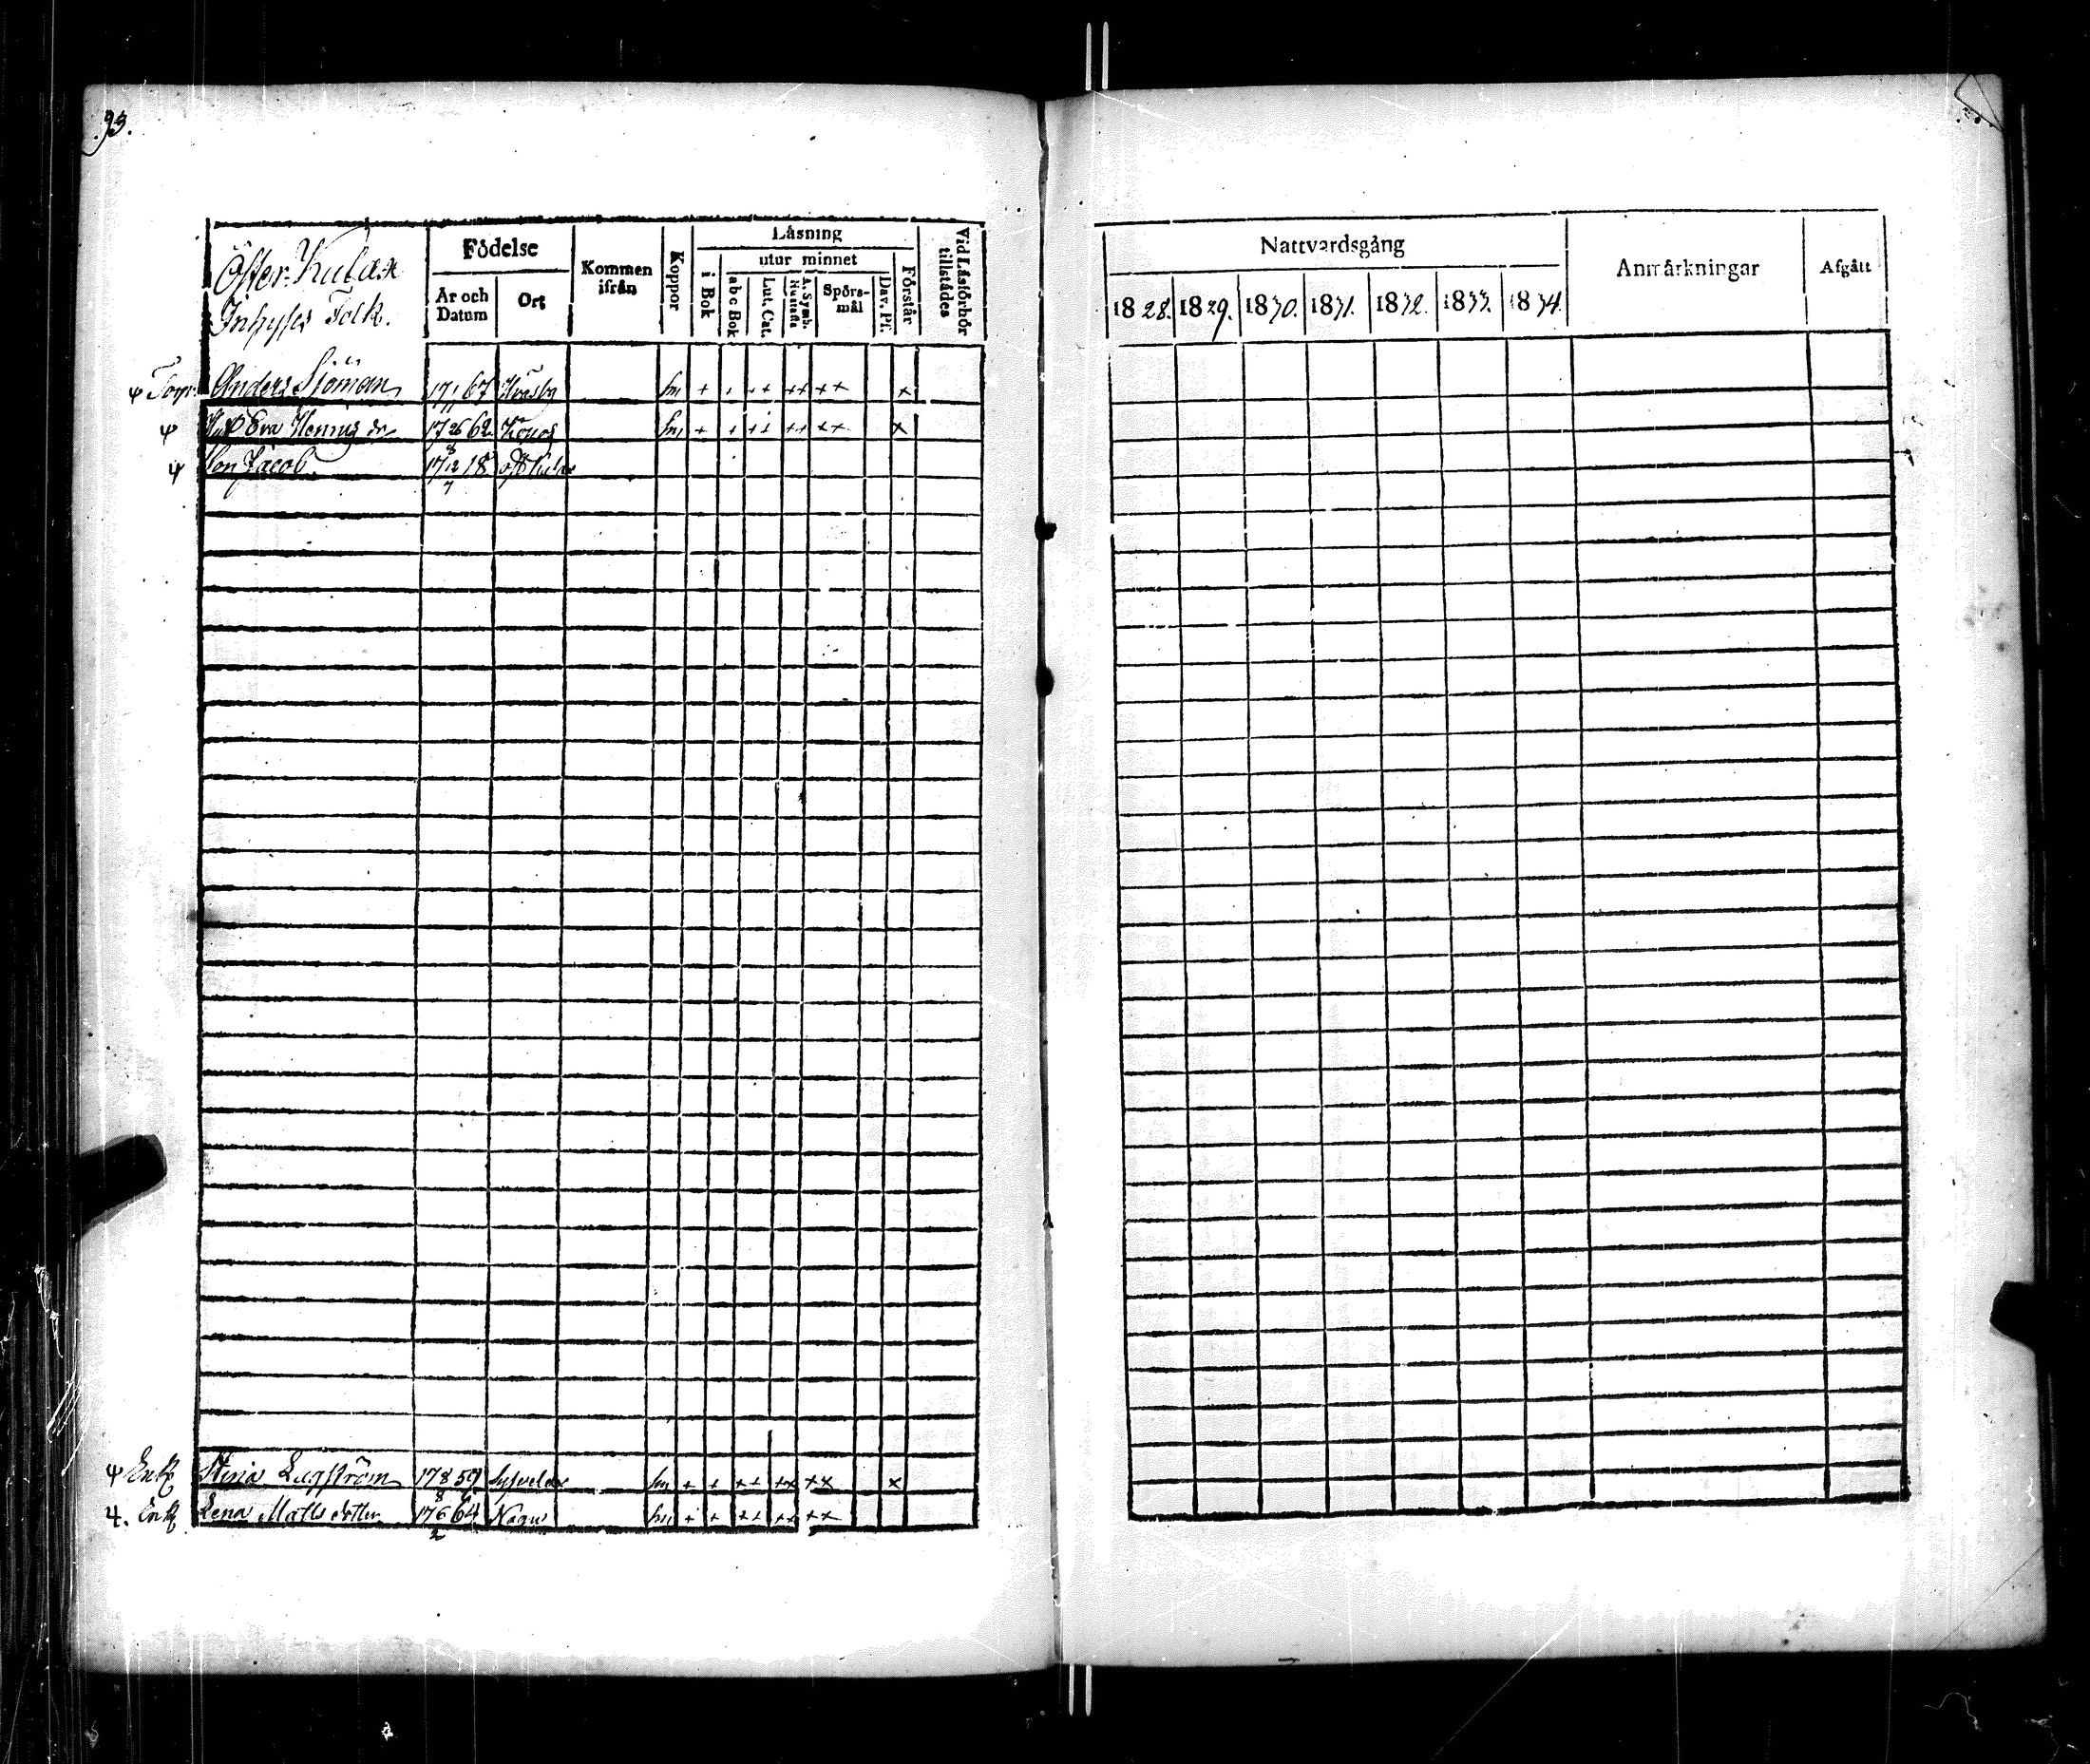 93.
Öster Kulax
Inhyses Folk.
Födelse
År och Datum
Ort
Kommen ifrån
Koppor
Läsning
i Bok
utur minnet
abc Bok
Lut. Cat.
A. Symb.
Spörsmål
Dav. Ps.
Förstår
Vid Läsförhör tillstådes
Anders Sjöman 17 11 67 + + + + + + + + ×
Hust Eva Hennigsdr 17 26/8 62 + + + + + + + + ×
Son Jacob 17 12/7 18
Enk Stina Lagström 17 8/8 59 + + + + + × + × ×
Enk Lena Matts dotter 17 6/2 64 + + + + + + + +
Nattvardsgång
1828. 1829. 1830. 1831. 1832. 1833. 1834.
Anmärkningar
Afgått